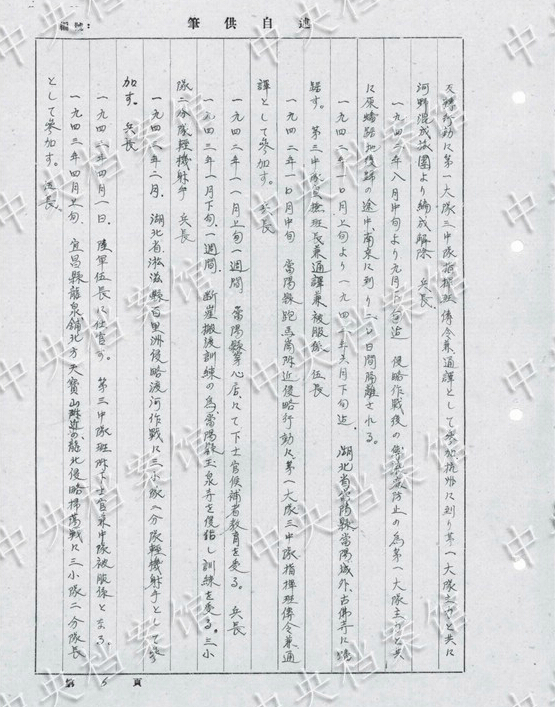 筆供自述
編號：
天橋行動に第一大隊三中隊指揮班傳令兼通譯として参加杭州に到り第一大隊主力と共に
河野混成旅團より編成解除 兵長
一九四二年八月中旬より九月下旬迄 侵略作戰後の防止の為第一大隊主力と共
に原駐屯地後歸の途中、南京に到り二〇日間隔離される。
一九四二年一〇月上旬より一九四 年六月下旬迄、湖北省當陽縣當陽城外、古佛寺に
第三中隊 班長兼通譯兼被服係、伍長
一九四二年一〇月中旬 當陽縣跑馬崗附近侵略行動に第一大隊三中隊指揮班傳令兼通
譯として参加す。兵長
一九四二年一一月上旬一週間、當陽縣 心店にて下士官候補者教育を受る。兵長
一九四三年一月下旬、一週間、断崖搬渡訓練の為當陽縣玉泉寺を侵 し訓練を受る。三小
隊二分隊輕機射手 兵長
一九四三年二月、湖北省松滋縣百里洲侵略渡河作戰に三小隊二分隊輕機射手として参
加す。兵長
一九四三年四月一日、陸軍伍長に任官す。第三中隊班附下士官兼中隊被服係となる。
一九四三年四月上旬、宜昌縣龍泉鋪北方天寶山附近の龍北侵略掃蕩戰に三小隊二分隊長
として参加す。伍長
第 5 頁
中央档案馆